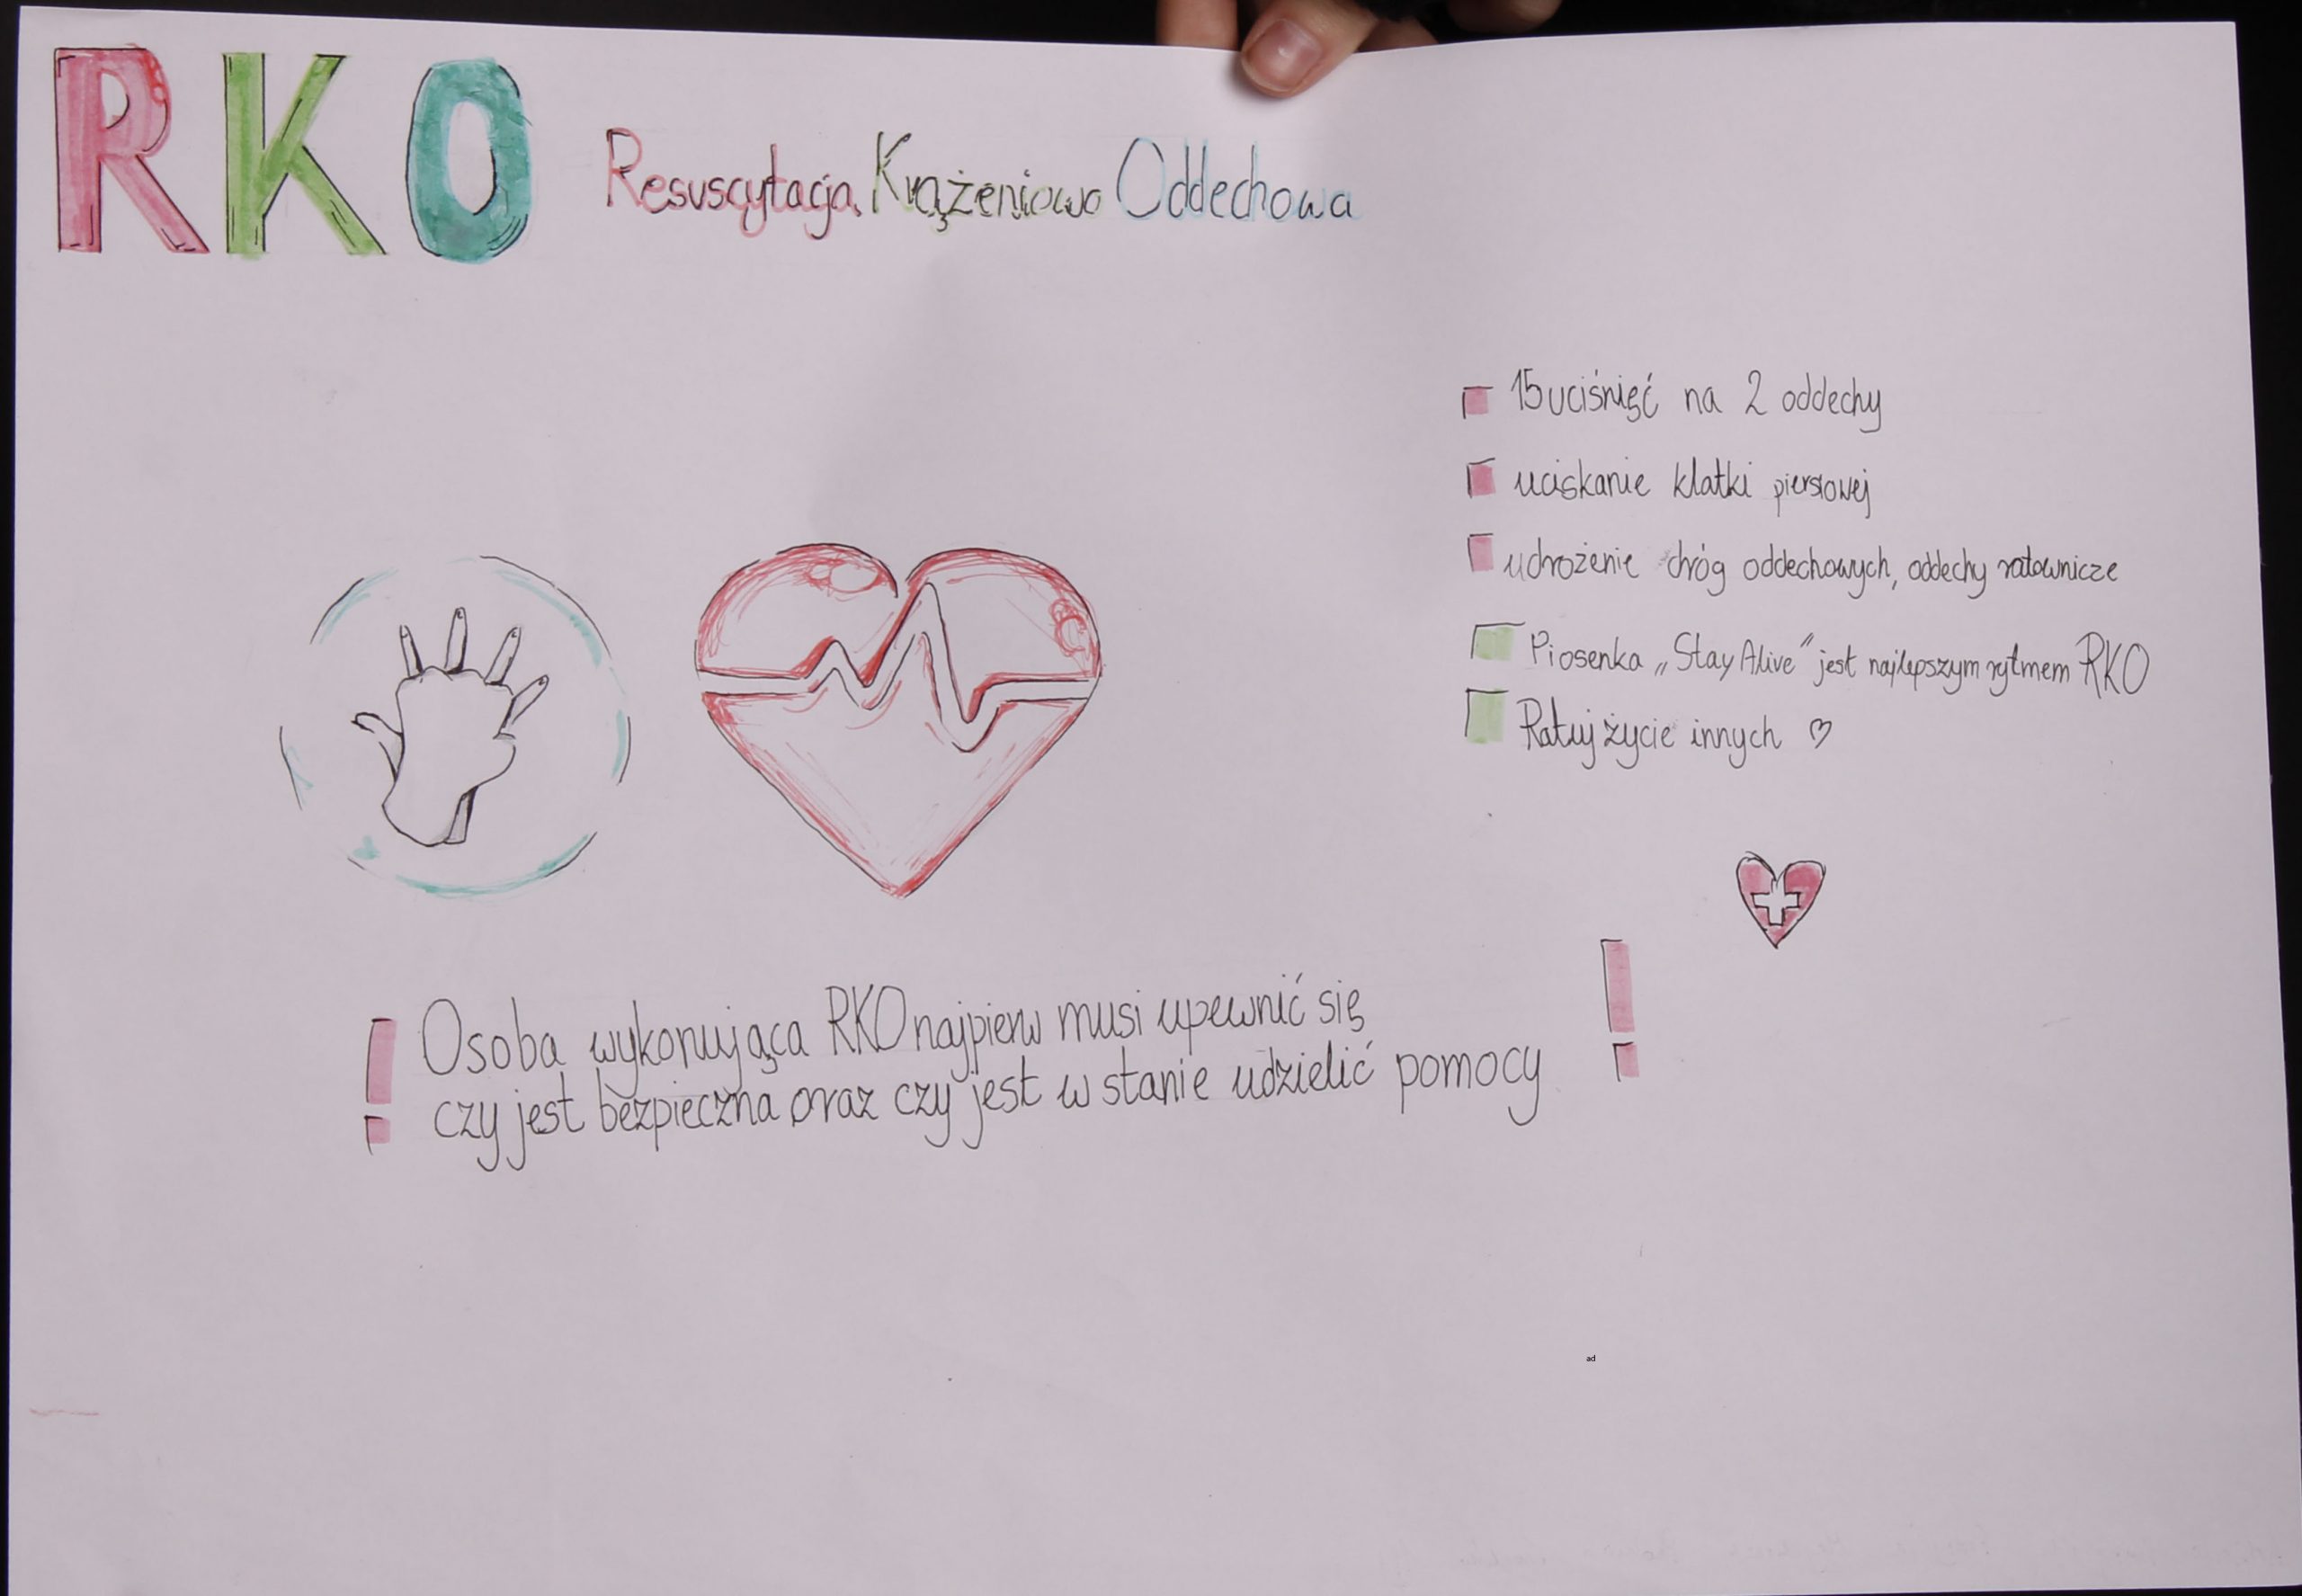 RKO
Resuscytacja Krążeniowo Oddechowa
15 uciśnięć na 2 oddechy
uciskanie klatki piersiowej
udrożenie dróg oddechowych, oddechy ratownicze
Piosenka „Stay Alive” jest najlepszym rytmem RKO
Ratuj życie innych ♡
! Osoba wykonująca RKO najpierw musi upewnić się !
czy jest bezpieczna oraz czy jest w stanie udzielić pomocy
ad